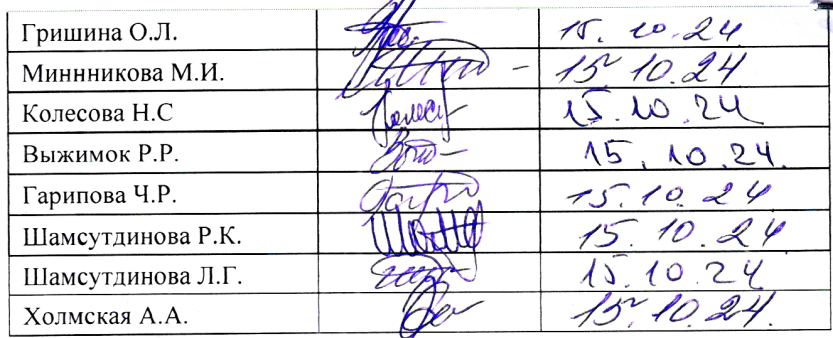 Гришина О.Л. 15.10.24
Миннникова М.И. 15.10.24
Колесова Н.С 15.10.24
Выжимок Р.Р. 15.10.24.
Гарипова Ч.Р. 15.10.24
Шамсутдинова Р.К. 15.10.24
Шамсутдинова Л.Г. 15.10.24
Холмская А.А. 15.10.24.